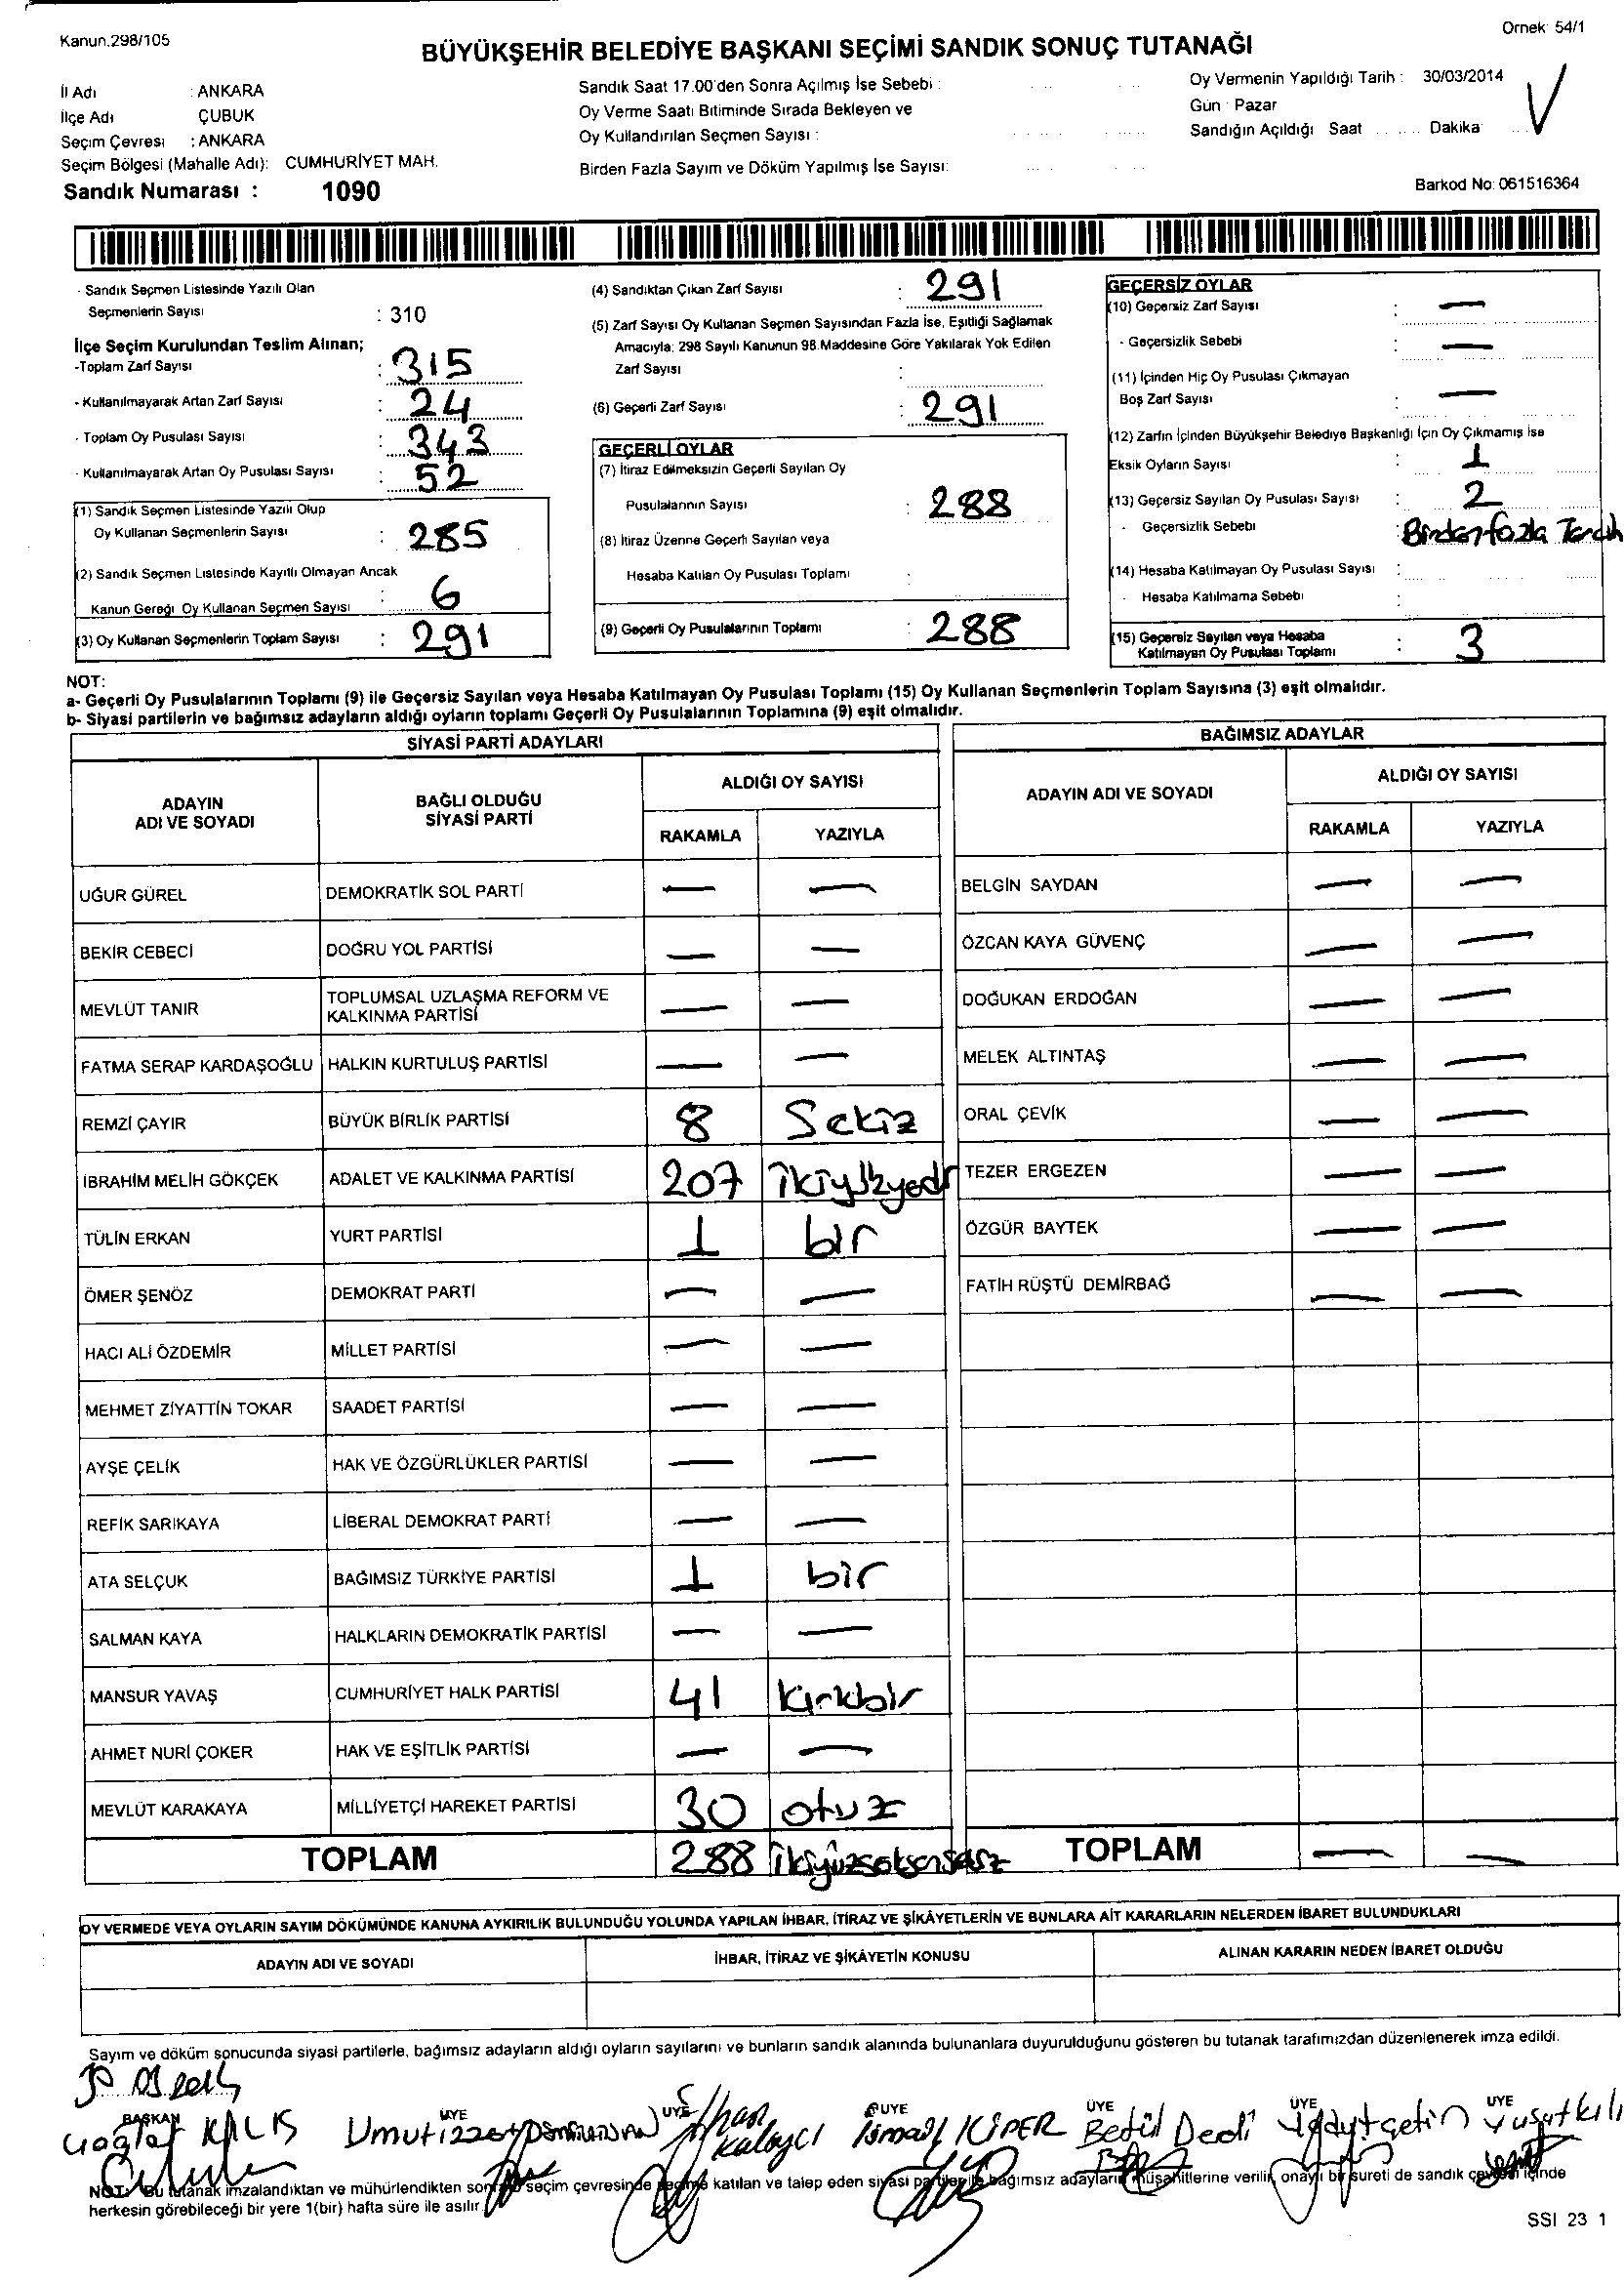 Kanun.298/105
Örnek 54/1
BÜYÜKŞEHİR BELEDİYE BAŞKANI SEÇİMİ SANDIK SONUÇ TUTANAĞI
İl Adı : ANKARA
İlçe Adı ÇUBUK
Seçim Çevresi : ANKARA
Seçim Bölgesi (Mahalle Adı): CUMHURİYET MAH.
Sandık Numarası : 1090
Sandık Saat 17.00'den Sonra Açılmış İse Sebebi :
Oy Verme Saati Bitiminde Sırada Bekleyen ve
Oy Kullandırılan Seçmen Sayısı :
Birden Fazla Sayım ve Döküm Yapılmış İse Sayısı:
Oy Vermenin Yapıldığı Tarih : 30/03/2014
Gün : Pazar
Sandığın Açıldığı Saat ........ Dakika
Barkod No: 061516364
- Sandık Seçmen Listesinde Yazılı Olan
Seçmenlerin Sayısı : 310
İlçe Seçim Kurulundan Teslim Alınan;
-Toplam Zarf Sayısı : 315
- Kullanılmayarak Artan Zarf Sayısı : 24
- Toplam Oy Pusulası Sayısı : 343
- Kullanılmayarak Artan Oy Pusulası Sayısı : 52
(1) Sandık Seçmen Listesinde Yazılı Olup
Oy Kullanan Seçmenlerin Sayısı : 285
(2) Sandık Seçmen Listesinde Kayıtlı Olmayan Ancak
Kanun Gereği Oy Kullanan Seçmen Sayısı : 6
(3) Oy Kullanan Seçmenlerin Toplam Sayısı : 291
(4) Sandıktan Çıkan Zarf Sayısı : 291
(5) Zarf Sayısı Oy Kullanan Seçmen Sayısından Fazla İse, Eşitliği Sağlamak
Amacıyla; 298 Sayılı Kanunun 98.Maddesine Göre Yakılarak Yok Edilen
Zarf Sayısı :
(6) Geçerli Zarf Sayısı : 291
GEÇERLİ OYLAR
(7) İtiraz Edilmeksizin Geçerli Sayılan Oy
Pusulalarının Sayısı : 288
(8) İtiraz Üzerine Geçerli Sayılan veya
Hesaba Katılan Oy Pusulası Toplamı :
(9) Geçerli Oy Pusulalarının Toplamı : 288
GEÇERSİZ OYLAR
(10) Geçersiz Zarf Sayısı : —
- Geçersizlik Sebebi : —
(11) İçinden Hiç Oy Pusulası Çıkmayan
Boş Zarf Sayısı : —
(12) Zarfın İçinden Büyükşehir Belediye Başkanlığı İçin Oy Çıkmamış İse
Eksik Oyların Sayısı : 1
(13) Geçersiz Sayılan Oy Pusulası Sayısı : 2
- Geçersizlik Sebebi : Birden fazla Tercih
(14) Hesaba Katılmayan Oy Pusulası Sayısı :
- Hesaba Katılmama Sebebi :
(15) Geçersiz Sayılan veya Hesaba
Katılmayan Oy Pusulası Toplamı : 3
NOT:
a- Geçerli Oy Pusulalarının Toplamı (9) ile Geçersiz Sayılan veya Hesaba Katılmayan Oy Pusulası Toplamı (15) Oy Kullanan Seçmenlerin Toplam Sayısına (3) eşit olmalıdır.
b- Siyasi partilerin ve bağımsız adayların aldığı oyların toplamı Geçerli Oy Pusulalarının Toplamına (9) eşit olmalıdır.
SİYASİ PARTİ ADAYLARI
ADAYIN ADI VE SOYADI BAĞLI OLDUĞU SİYASİ PARTİ ALDIĞI OY SAYISI
RAKAMLA YAZIYLA
UĞUR GÜREL DEMOKRATİK SOL PARTİ — —
BEKİR CEBECİ DOĞRU YOL PARTİSİ — —
MEVLÜT TANIR TOPLUMSAL UZLAŞMA REFORM VE KALKINMA PARTİSİ — —
FATMA SERAP KARDAŞOĞLU HALKIN KURTULUŞ PARTİSİ — —
REMZİ ÇAYIR BÜYÜK BİRLİK PARTİSİ 8 Sekiz
İBRAHİM MELİH GÖKÇEK ADALET VE KALKINMA PARTİSİ 207 ikiyüzyedi
TÜLİN ERKAN YURT PARTİSİ 1 bir
ÖMER ŞENÖZ DEMOKRAT PARTİ — —
HACI ALİ ÖZDEMİR MİLLET PARTİSİ — —
MEHMET ZİYATTİN TOKAR SAADET PARTİSİ — —
AYŞE ÇELİK HAK VE ÖZGÜRLÜKLER PARTİSİ — —
REFİK SARIKAYA LİBERAL DEMOKRAT PARTİ — —
ATA SELÇUK BAĞIMSIZ TÜRKİYE PARTİSİ 1 bir
SALMAN KAYA HALKLARIN DEMOKRATİK PARTİSİ — —
MANSUR YAVAŞ CUMHURİYET HALK PARTİSİ 41 kırkbir
AHMET NURİ ÇOKER HAK VE EŞİTLİK PARTİSİ — —
MEVLÜT KARAKAYA MİLLİYETÇİ HAREKET PARTİSİ 30 otuz
TOPLAM 288 ikiyüzseksensekiz
BAĞIMSIZ ADAYLAR
ADAYIN ADI VE SOYADI ALDIĞI OY SAYISI
RAKAMLA YAZIYLA
BELGİN SAYDAN — —
ÖZCAN KAYA GÜVENÇ — —
DOĞUKAN ERDOĞAN — —
MELEK ALTINTAŞ — —
ORAL ÇEVİK — —
TEZER ERGEZEN — —
ÖZGÜR BAYTEK — —
FATİH RÜŞTÜ DEMİRBAĞ — —
TOPLAM — —
OY VERMEDE VEYA OYLARIN SAYIM DÖKÜMÜNDE KANUNA AYKIRILIK BULUNDUĞU YOLUNDA YAPILAN İHBAR, İTİRAZ VE ŞİKÂYETLERİN VE BUNLARA AİT KARARLARIN NELERDEN İBARET BULUNDUKLARI
ADAYIN ADI VE SOYADI İHBAR, İTİRAZ VE ŞİKÂYETİN KONUSU ALINAN KARARIN NEDEN İBARET OLDUĞU
Sayım ve döküm sonucunda siyasi partilerle, bağımsız adayların aldığı oyların sayılarını ve bunların sandık alanında bulunanlara duyurulduğunu gösteren bu tutanak tarafımızdan düzenlenerek imza edildi.
BAŞKAN ÜYE ÜYE ÜYE ÜYE ÜYE ÜYE
KILIS Umut İsmail KİPER Betül Dedi
NOT: Bu tutanak imzalandıktan ve mühürlendikten sonra seçim çevresinde seçime katılan ve talep eden siyasi partiler ile bağımsız adayların müşahitlerine verilir, onaylı bir sureti de sandık çevresi içinde
herkesin görebileceği bir yere 1(bir) hafta süre ile asılır.
SSI 23 1